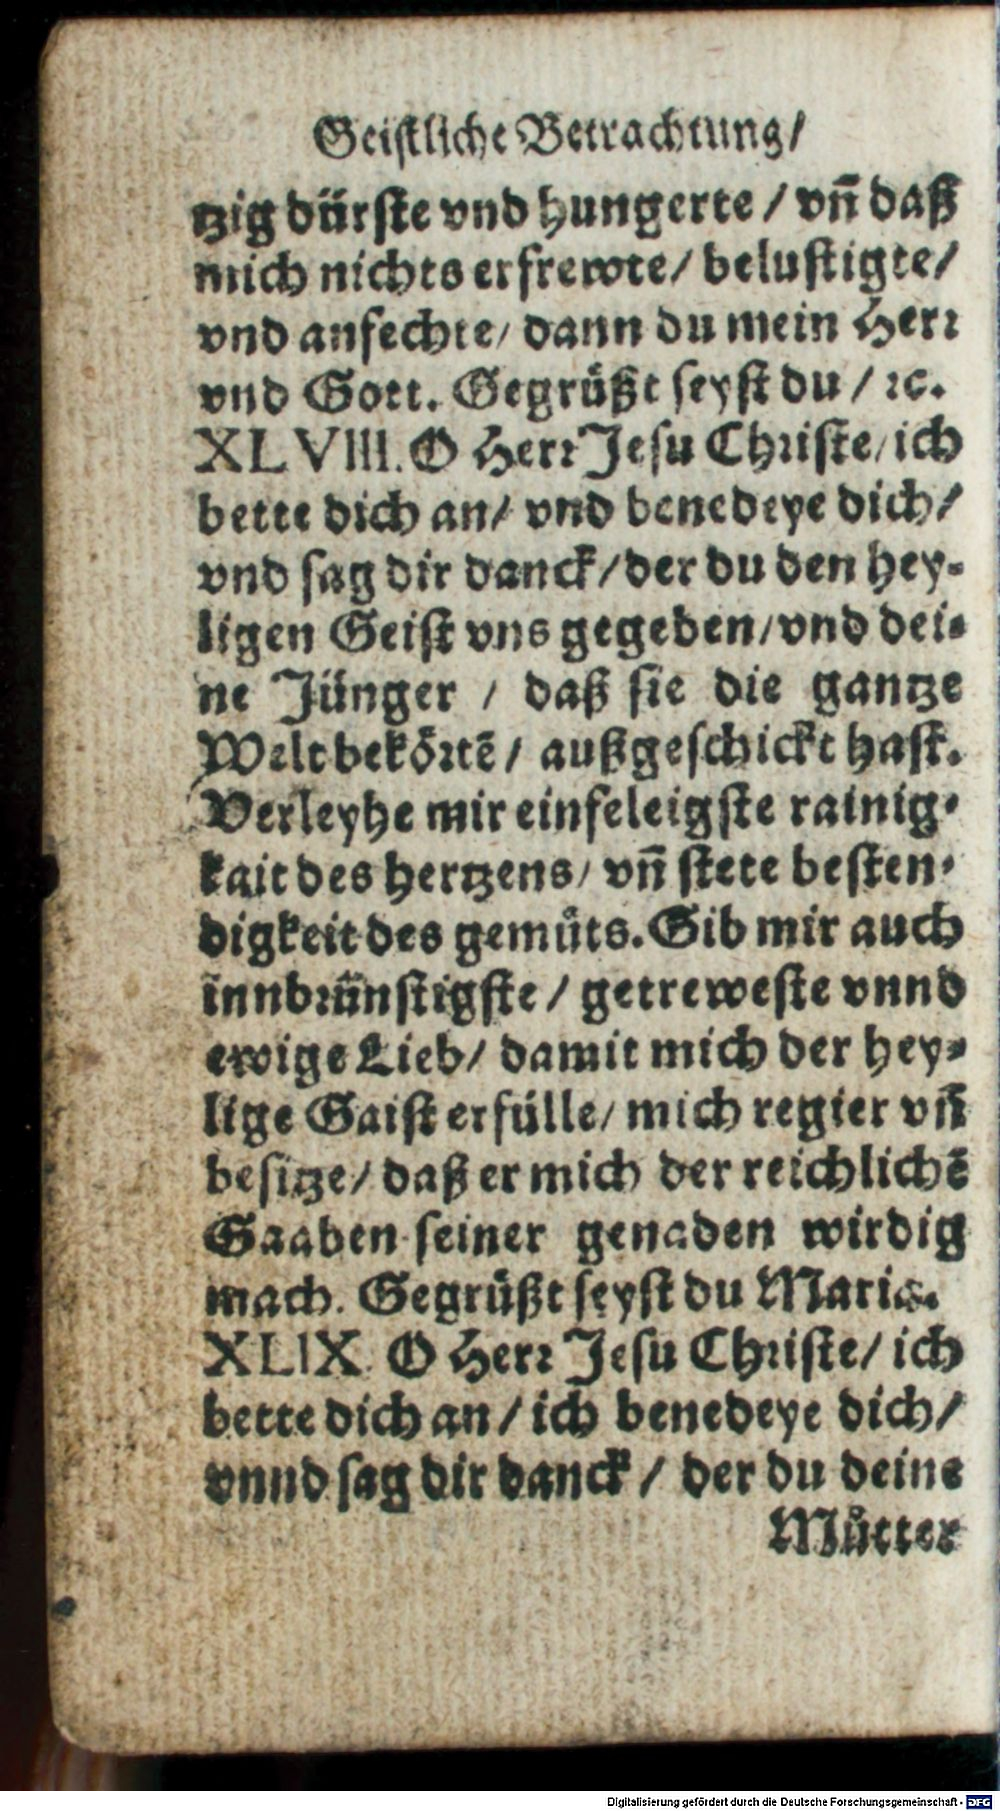 Geistliche Betrachtung/
tzig dürste vnd hungerte / vñ daß
mich nichts erfrewte/ belustigte/
vnd anfechte/ dann du mein Herr
vnd Gott. Gegrüßt seyst du / ꝛc.
XLVIII. O Herr Jesu Christe/ ich
bette dich an/ vnd benedeye dich/
vnd sag dir danck/ der du den hey-
ligen Geist vns gegeben/ vnd dei-
ne Jünger / daß sie die gantze
Welt bekörtẽ/ außgeschickt hast.
Verleyhe mir einfeleigste rainig-
kait des hertzens/ vñ stete besten-
digkeit des gemüts. Gib mir auch
innbrünstigste / getreweste vnnd
ewige Lieb/ damit mich der hey-
lige Gaist erfülle/ mich regier vñ
besitze/ daß er mich der reichlichẽ
Gaaben seiner genaden wirdig
mach. Gegrüßt seyst du Maria.
XLIX. O Herr Jesu Christe/ ich
bette dich an / ich benedeye dich/
vnnd sag dir danck / der du deine
Můtter
Digitalisierung gefördert durch die Deutsche Forschungsgemeinschaft - DFG